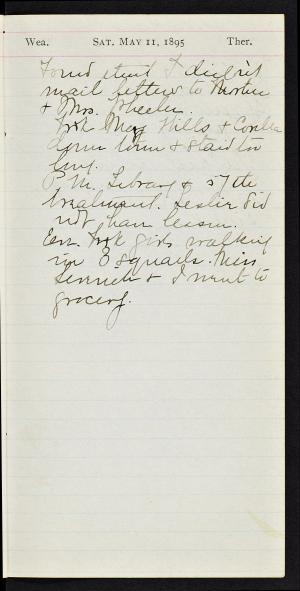 Wea. SAT. MAY 11, 1895 Ther.
Found that I didn't
mail letters to
& Mrs. Wheeler.
Took May Hills & Corella
down town & staid too
long.
P.M. Library & 57th
treatment. Leslie did
not have lesson.
Eve. Took girls walking
in 3 squads. Miss
& I went to
grocery.